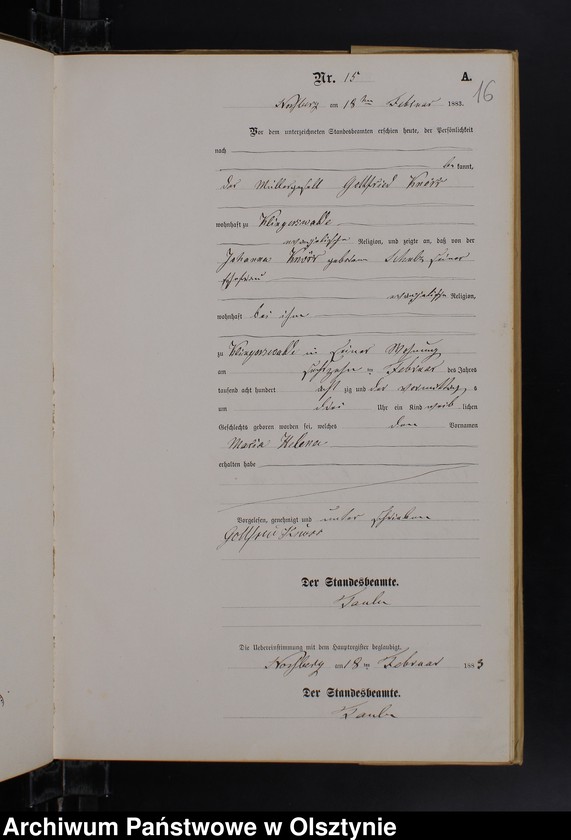 Nr. 15 A.
16
am 18ten Februar 1883.
Vor dem unterzeichneten Standesbeamten erschien heute, der Persönlichkeit
nach
be kannt,
der Müllergesell Gottfried Knorr
wohnhaft zu Klingerswalde
evangelischer Religion, und zeigte an, daß von der
Johanna Knorr geborene Schulz seiner
Ehefrau
evangelischer Religion,
wohnhaft bei ihm
zu Klingerswalde in seiner Wohnung
am Februar des Jahres
tausend acht hundert acht zig und drei Vormittags
um drei Uhr ein Kind weib lichen
Geschlechts geboren worden sei, welches den Vornamen
Maria Helena
erhalten habe
Vorgelesen, genehmigt und unterschrieben
Gottfried Knorr
Der Standesbeamte.
Die Uebereinstimmung mit dem Hauptregister beglaubigt.
am 18ten Februar 1883
Der Standesbeamte.
Archiwum Państwowe w Olsztynie